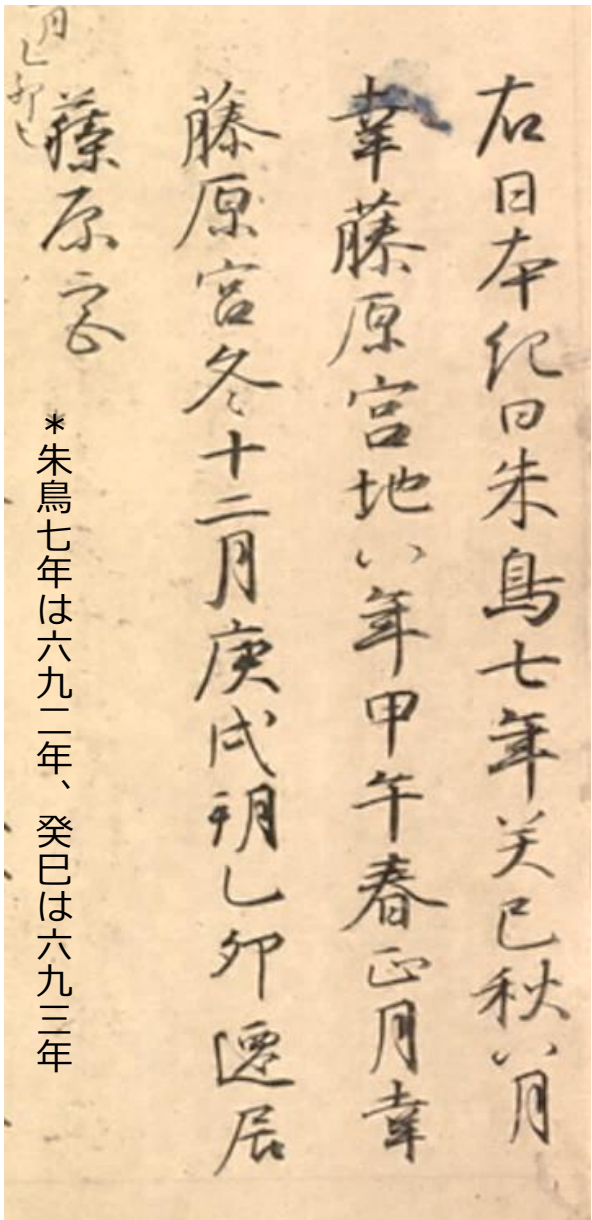 右日本紀曰朱鳥七年癸巳秋八月
幸藤原宮地八年甲午春正月幸
藤原宮冬十二月庚戌朔乙卯遷居
藤原宮
月乙卯已
*朱鳥七年は六九二年、癸巳は六九三年